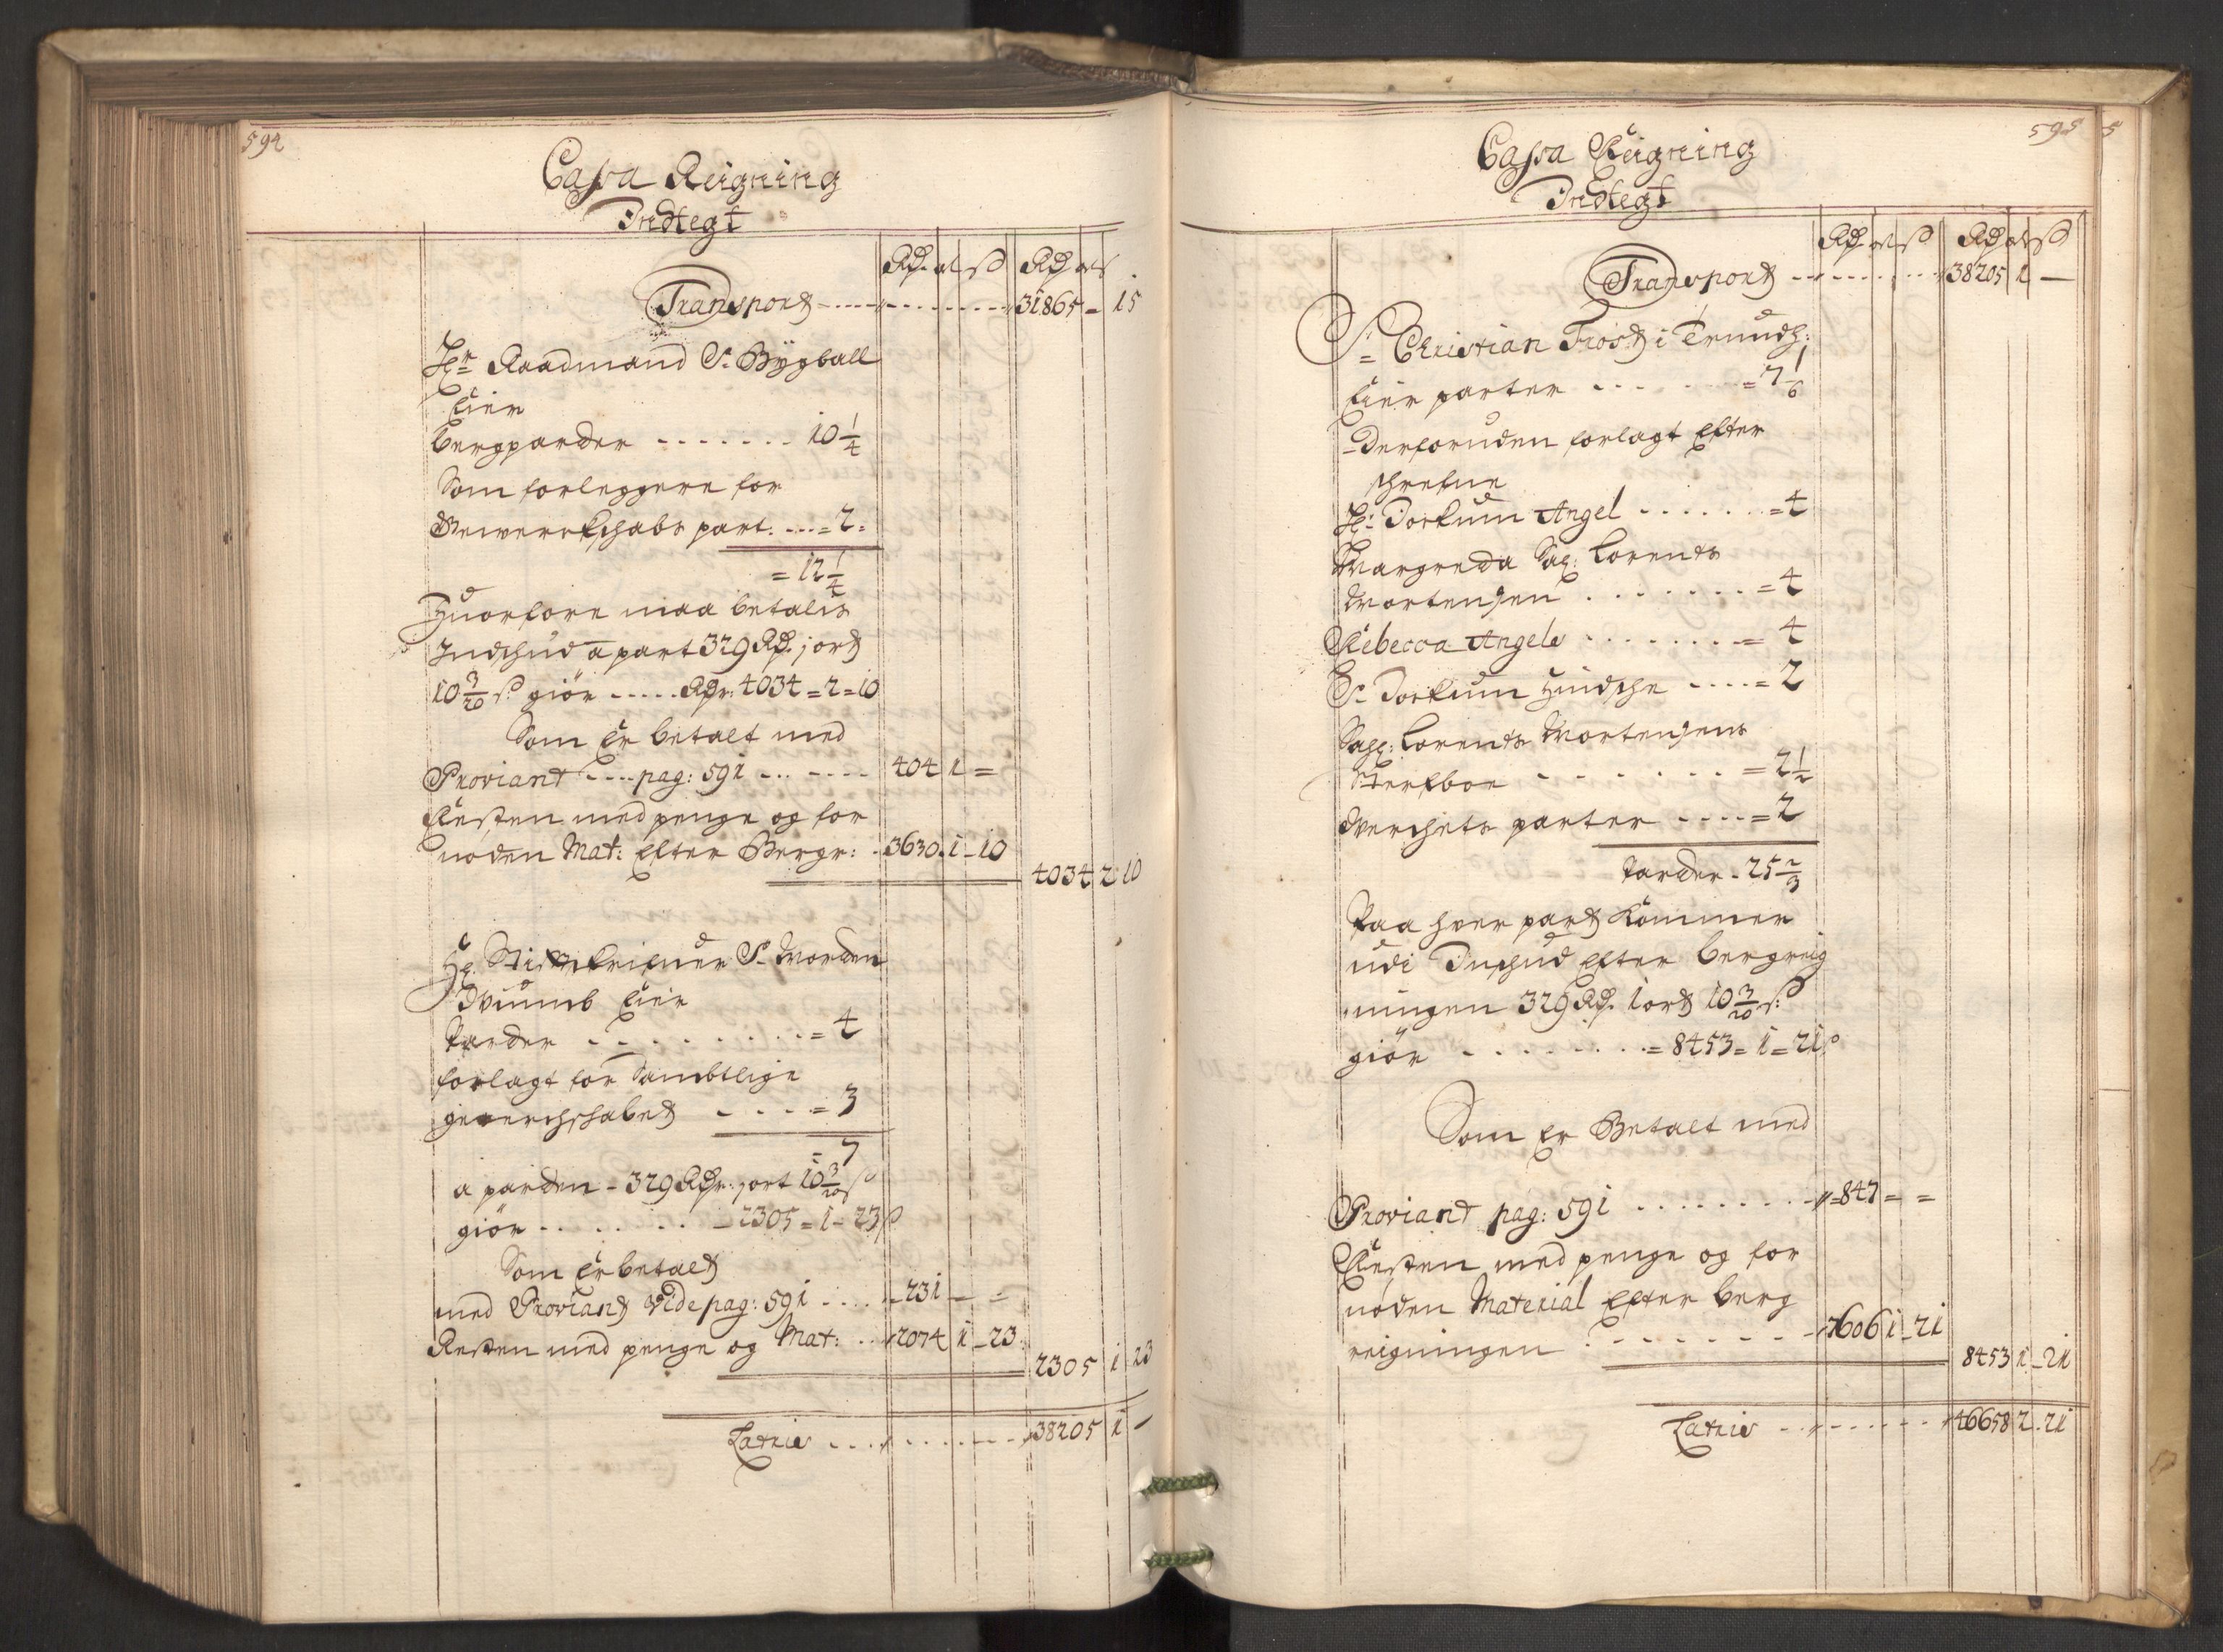 594
Cassa Reigning
Indtegt
Rd. ort s Rd ort s
Transport 31865 = 15
Hr Raadmand Sr. Bÿgball
Eier
bergparder ....... 10 1/4
Som forleggere for
Gewerckschabs part: .... = 2 =
= 12 1/4
Huorfore maa betalis
Indschud a part 329 Rd. 1 ort
10 3/20 s. giör ..... Rdr. 4034 = 2 = 10
Som Er betalt med
Proviant .... pag: 591 ... .... 404 1 =
Resten med penge og for
nøden Mat: Efter Bergr: 3630. 1 - 10
4034 2 10
Hr. Sr. Morden
Eier
Parder ......... = 4
forlagt for Sambtlige
gewerchschabet .... = 3
= 7
a parden - 329 Rdr. 1 ort 10 3/20 s
giör ........ - 2305 = 1 - 23 s
Som Er betalt
med Proviant Vide pag: 591 .... - 231 - =
Resten med penge og Mat: .. 2074 1 - 23
2305 1 23
Latris ............ 38205 1 -
595
5
Cassa Reigning
Indtegt
Rd. ort s Rd ort s
Transport 38205 1 -
Sr. Christian Frost i Trundh:
Eier parter ... .... = 7 1/6
Derforuden forlagt Efter
schrefne
Hr: Dorkum Angel ...... = 4
Margreda Sal: Lorents
Mortensen ........ = 4
Rebecca Angels ........ = 4
Sr. Dorkum Hindsche .... = 2
Sahl: Lorents Mortensens
Sterfboe ....... = 2 1/2
Werchets parter .... = 2
Parder - 25 2/3
Paa hver part Kommer
udi Inschud Efter bergreig
ningen 329 Rd. 1 ort 10 3/20 s:
giör ........ = 8453 = 1 = 21 s
Som Er Betalt med
Proviant pag: 591 ......... - 847 = =
Resten med penge og for
nøden Material Efter berg
reigningen ....... 7606 1 - 21
8453 1 - 21
Latris ........ 46658 2 - 21